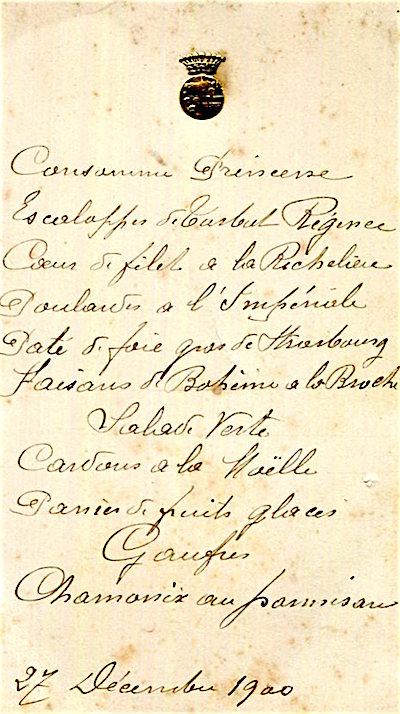 Consommé Princesse
Escaloppes de Turbot Régence
Cœur de filet à la Richelieu
Poulardes à l'Impériale
Paté de foie gras de Strasbourg
Faisans de Bohème à la Broche
Salade Verte
Cardons à la Moëlle
Panier de fruits glacés
Gaufres
Chamonix au parmisan
27 Décembre 1900